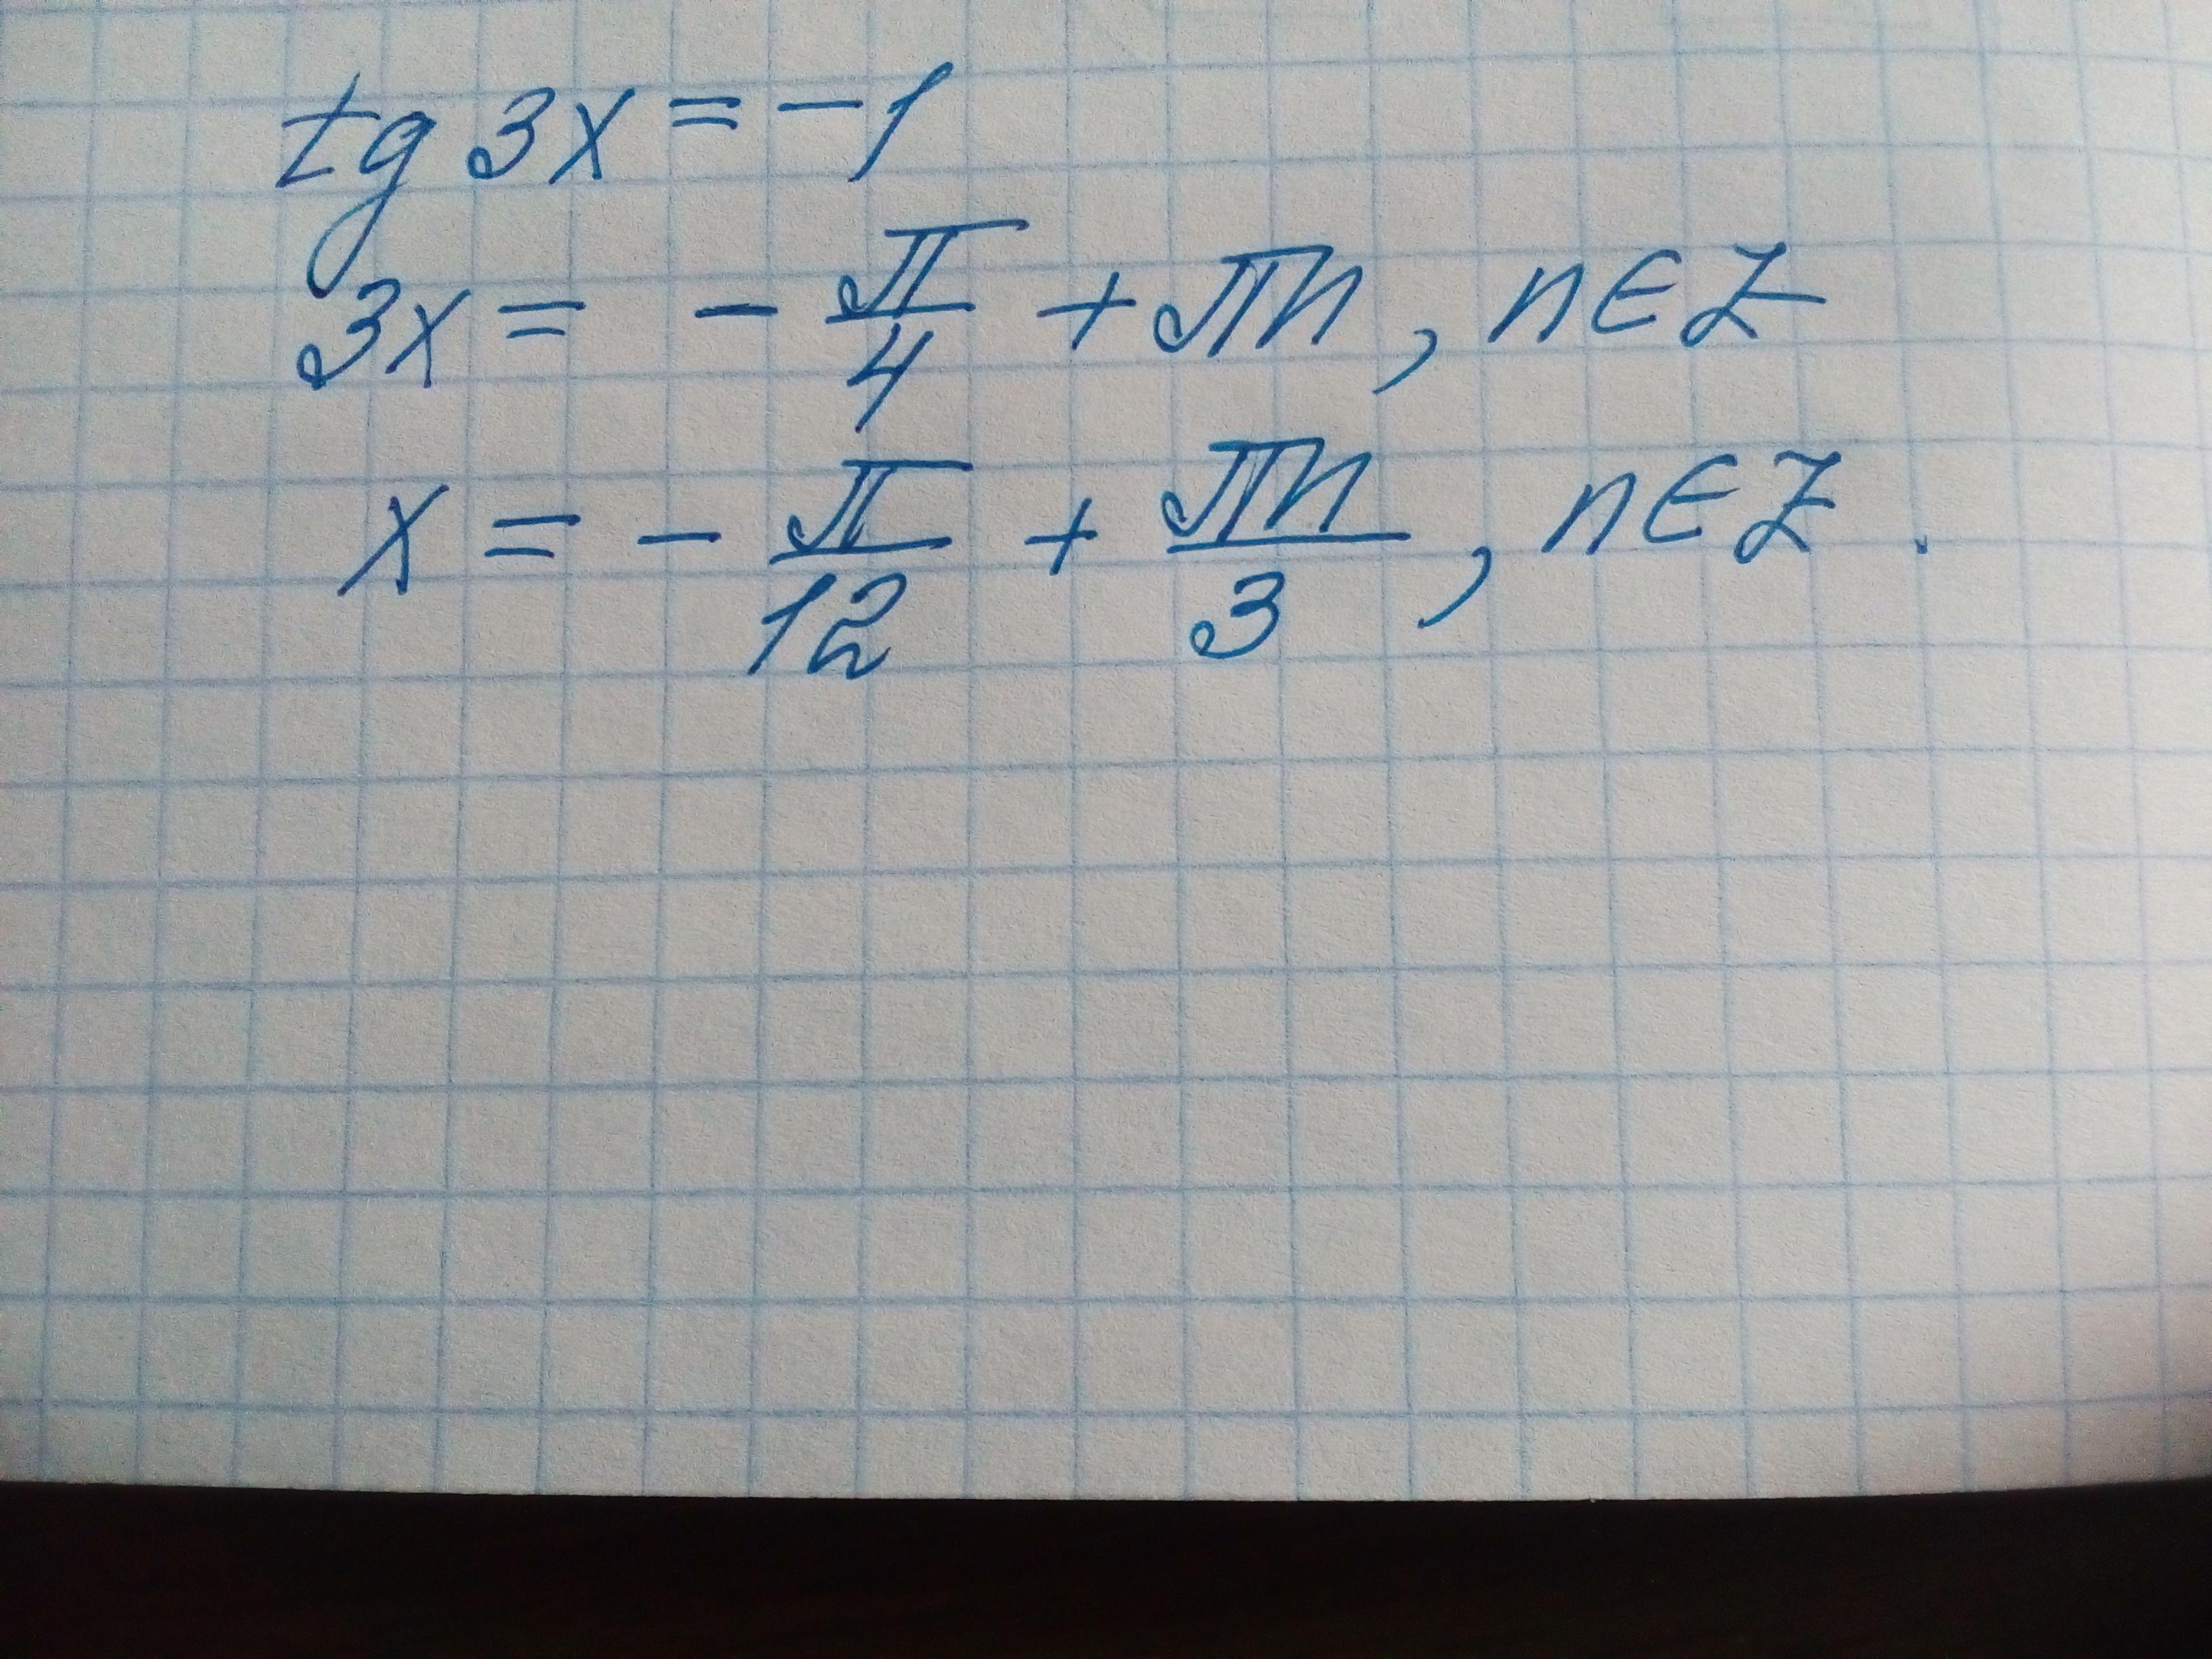 tg 3x = -1
3x = - π/4 + πn, n ∈ Z
x = - π/12 + πn/3, n ∈ Z.